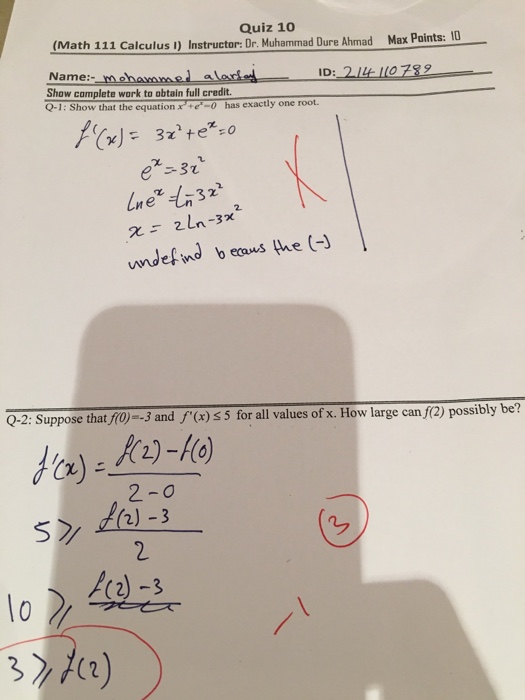 Quiz 10
(Math 111 Calculus I) Instructor: Dr. Muhammad Dure Ahmad Max Points: 10
Name:- mohammed alarfaj ID: 214110789
Show complete work to obtain full credit.
Q-1: Show that the equation x³+eˣ=0 has exactly one root.
f'(x) = 3x²+eˣ=0
eˣ=-3x²
Lneˣ=Ln-3x²
x = 2Ln-3x²
undefind becaus the (-)
X
Q-2: Suppose that f(0)=-3 and f'(x) ≤ 5 for all values of x. How large can f(2) possibly be?
f'(x) = f(2)-f(0)
2-0
5 ⩾ f(2)-3
2
3
10 ⩾ f(2)-3
-1
3 ⩾ f(2)